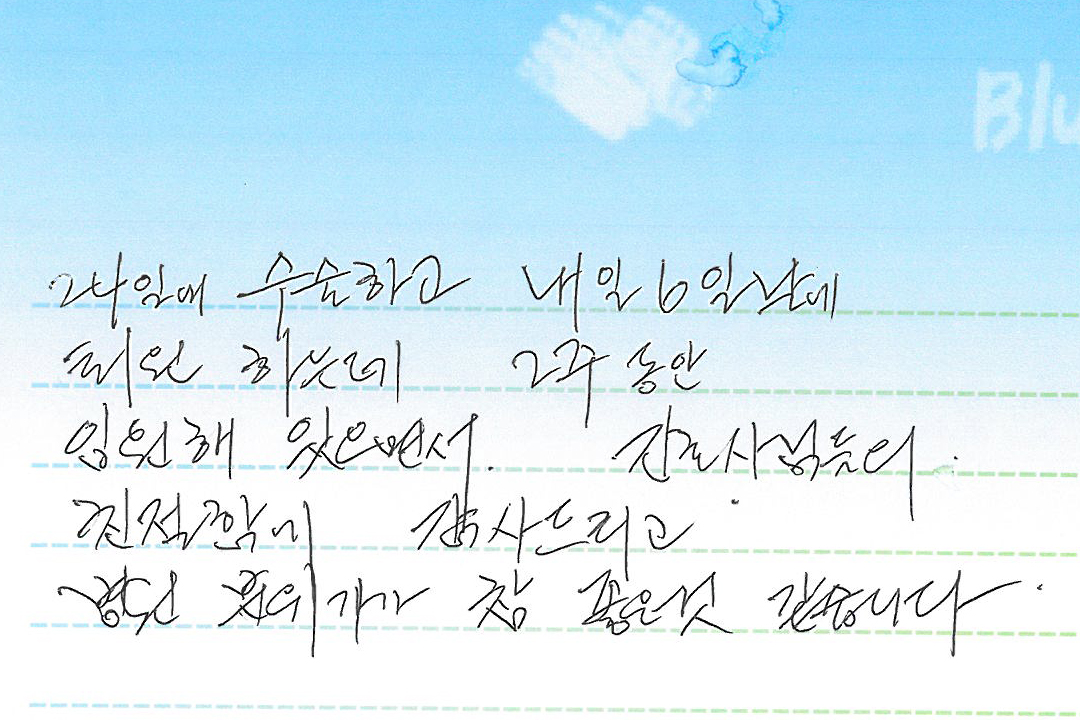 Blu
24일에 수술하고 내일 6일날에
퇴원 하는데 2주 동안
입원해 있으면서. 간호사님들의.
친절함에 감사드리고
병원 분위기가 참 좋은것 같습니다.